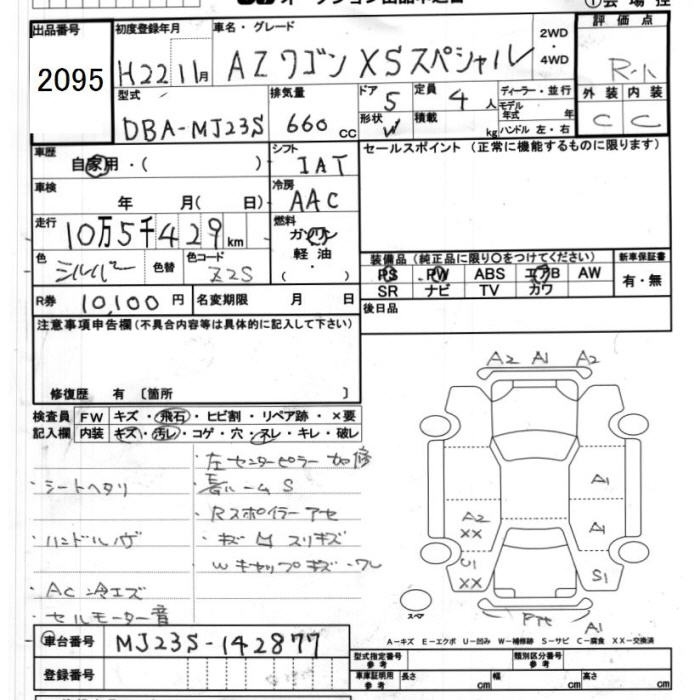 オークション出品申込書 ①会場控
出品番号 2095
初度登録年月 H22 11月
車名・グレード AZワゴン XSスペシャル
2WD・4WD
評価点 R-1
外装 C 内装 C
型式 DBA-MJ23S
排気量 660 cc
ドア 5 形状 W
定員 4 人 積載 kg
ディーラー・並行
モデル年式 年
ハンドル 左・右
車歴 自家用・( )
シフト IAT
セールスポイント (正常に機能するものに限ります)
車検 年 月( 日)
冷房 AAC
走行 10万5千429km
燃料 ガソリン 軽油 ( ・ )
色 シルバー 色替 色コード Z2S
装備品 (純正品に限り〇をつけてください) 新車保証書
PS PW ABS エアB AW 有・無
SR ナビ TV カワ
R券 10,100円 名変期限 月 日
後日品
注意事項申告欄 (不具合内容等は具体的に記入して下さい)
修復歴 有 〔箇所 〕
検査員 FW キズ・飛石・ヒビ割・リペア跡・×要
記入欄 内装 キズ・汚レ・コゲ・穴・ネレ・キレ・破レ
・左センターピラー 加修
・シートヘタリ ・長ルーム S
・Rスポイラー アセ
・ハンドル ・キズ 凹 スリキズ
・Wキャップキズ・ワレ
・AC 冷エズ
・セルモーター音
A2 A1 A2
A1
A2 XX A1
U1 XX S1
スペア
A1
A-キズ E-エクボ U-凹み W-補修跡 S-サビ C-腐食 XX-交換済
車台番号 MJ23S-142877
型式指定番号 参考 類別区分番号 参考
登録番号
車庫証明用 参考 長さ cm 幅 cm 高さ cm